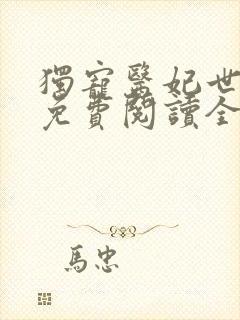 獨寵醫妃世
免費閱讀全
馬忠